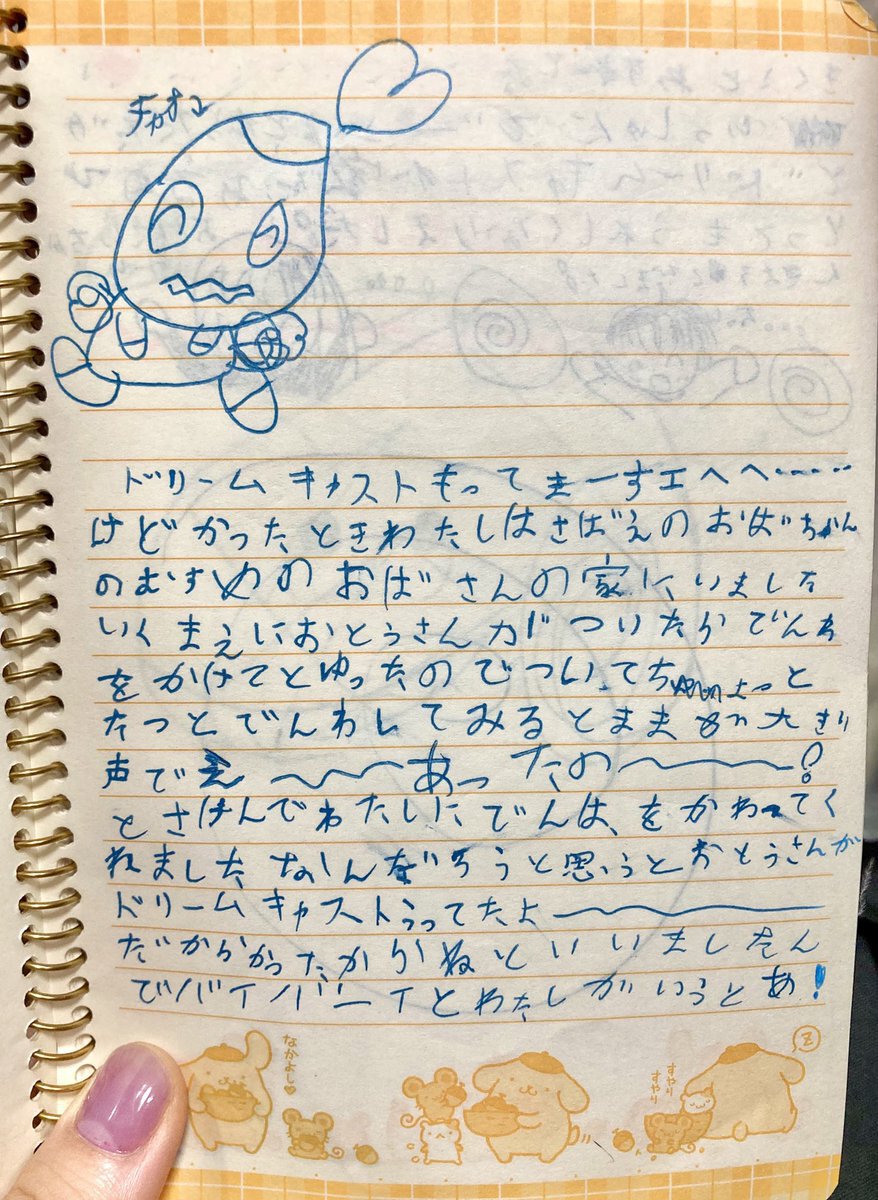 チャオ
ドリームキャストもってまーすエヘヘ……
けどかったときわたしはさばえのおばちゃん
のむすめのおばさんの家にいました
いくまえにおとうさんがついたらでんわ
をかけてとゆったのでついてち
たっとでんわしてみるとまま 大きい
声でえ〜〜あったの〜〜?
とさけんでわたしにでんは、をかわってく
れましたなんだろうと思うとおとうさんが
ドリームキャストうってたよ〜〜
だからかったからねといいましたん
でバイバーイとわたしがいうとあ!
なかよし♡
すやり
すやり
z